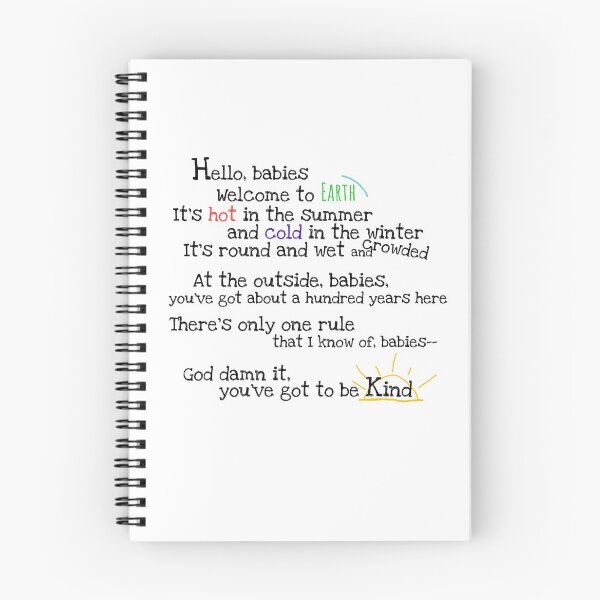 Hello, babies
Welcome to EARTH
It's hot in the summer
and cold in the winter
It's round and wet and crowded
At the outside, babies,
you've got about a hundred years here
There's only one rule
that I know of, babies--
God damn it,
you've got to be Kind